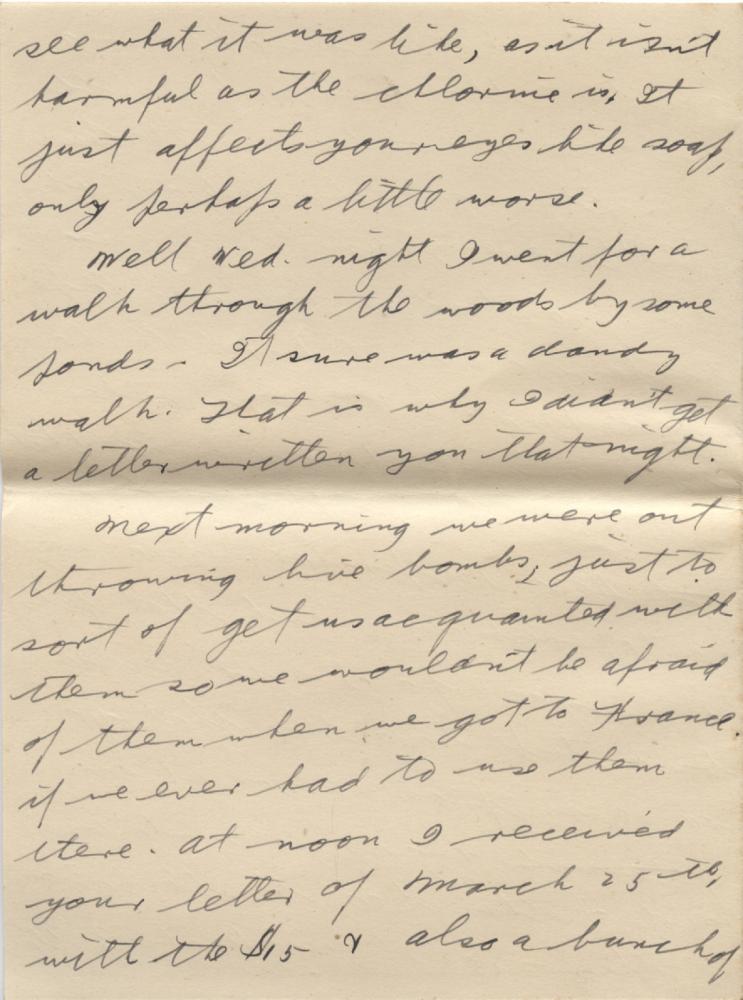 see what it was like, as it isn't
harmful as the chlorine is. It
just affects your eyes like soap,
only perhaps a little worse.
Well Wed. night I went for a
walk through the woods by some
ponds - It sure was a dandy
walk. That is why I didn't get
a letter written you that night.
Next morning we were out
throwing live bombs, just to
sort of get us acquainted with
them so we wouldn't be afraid
of them when we got to France.
if we ever had to use them
there. At noon I received
your letter of March 25th,
with the $15 & also a bunch of